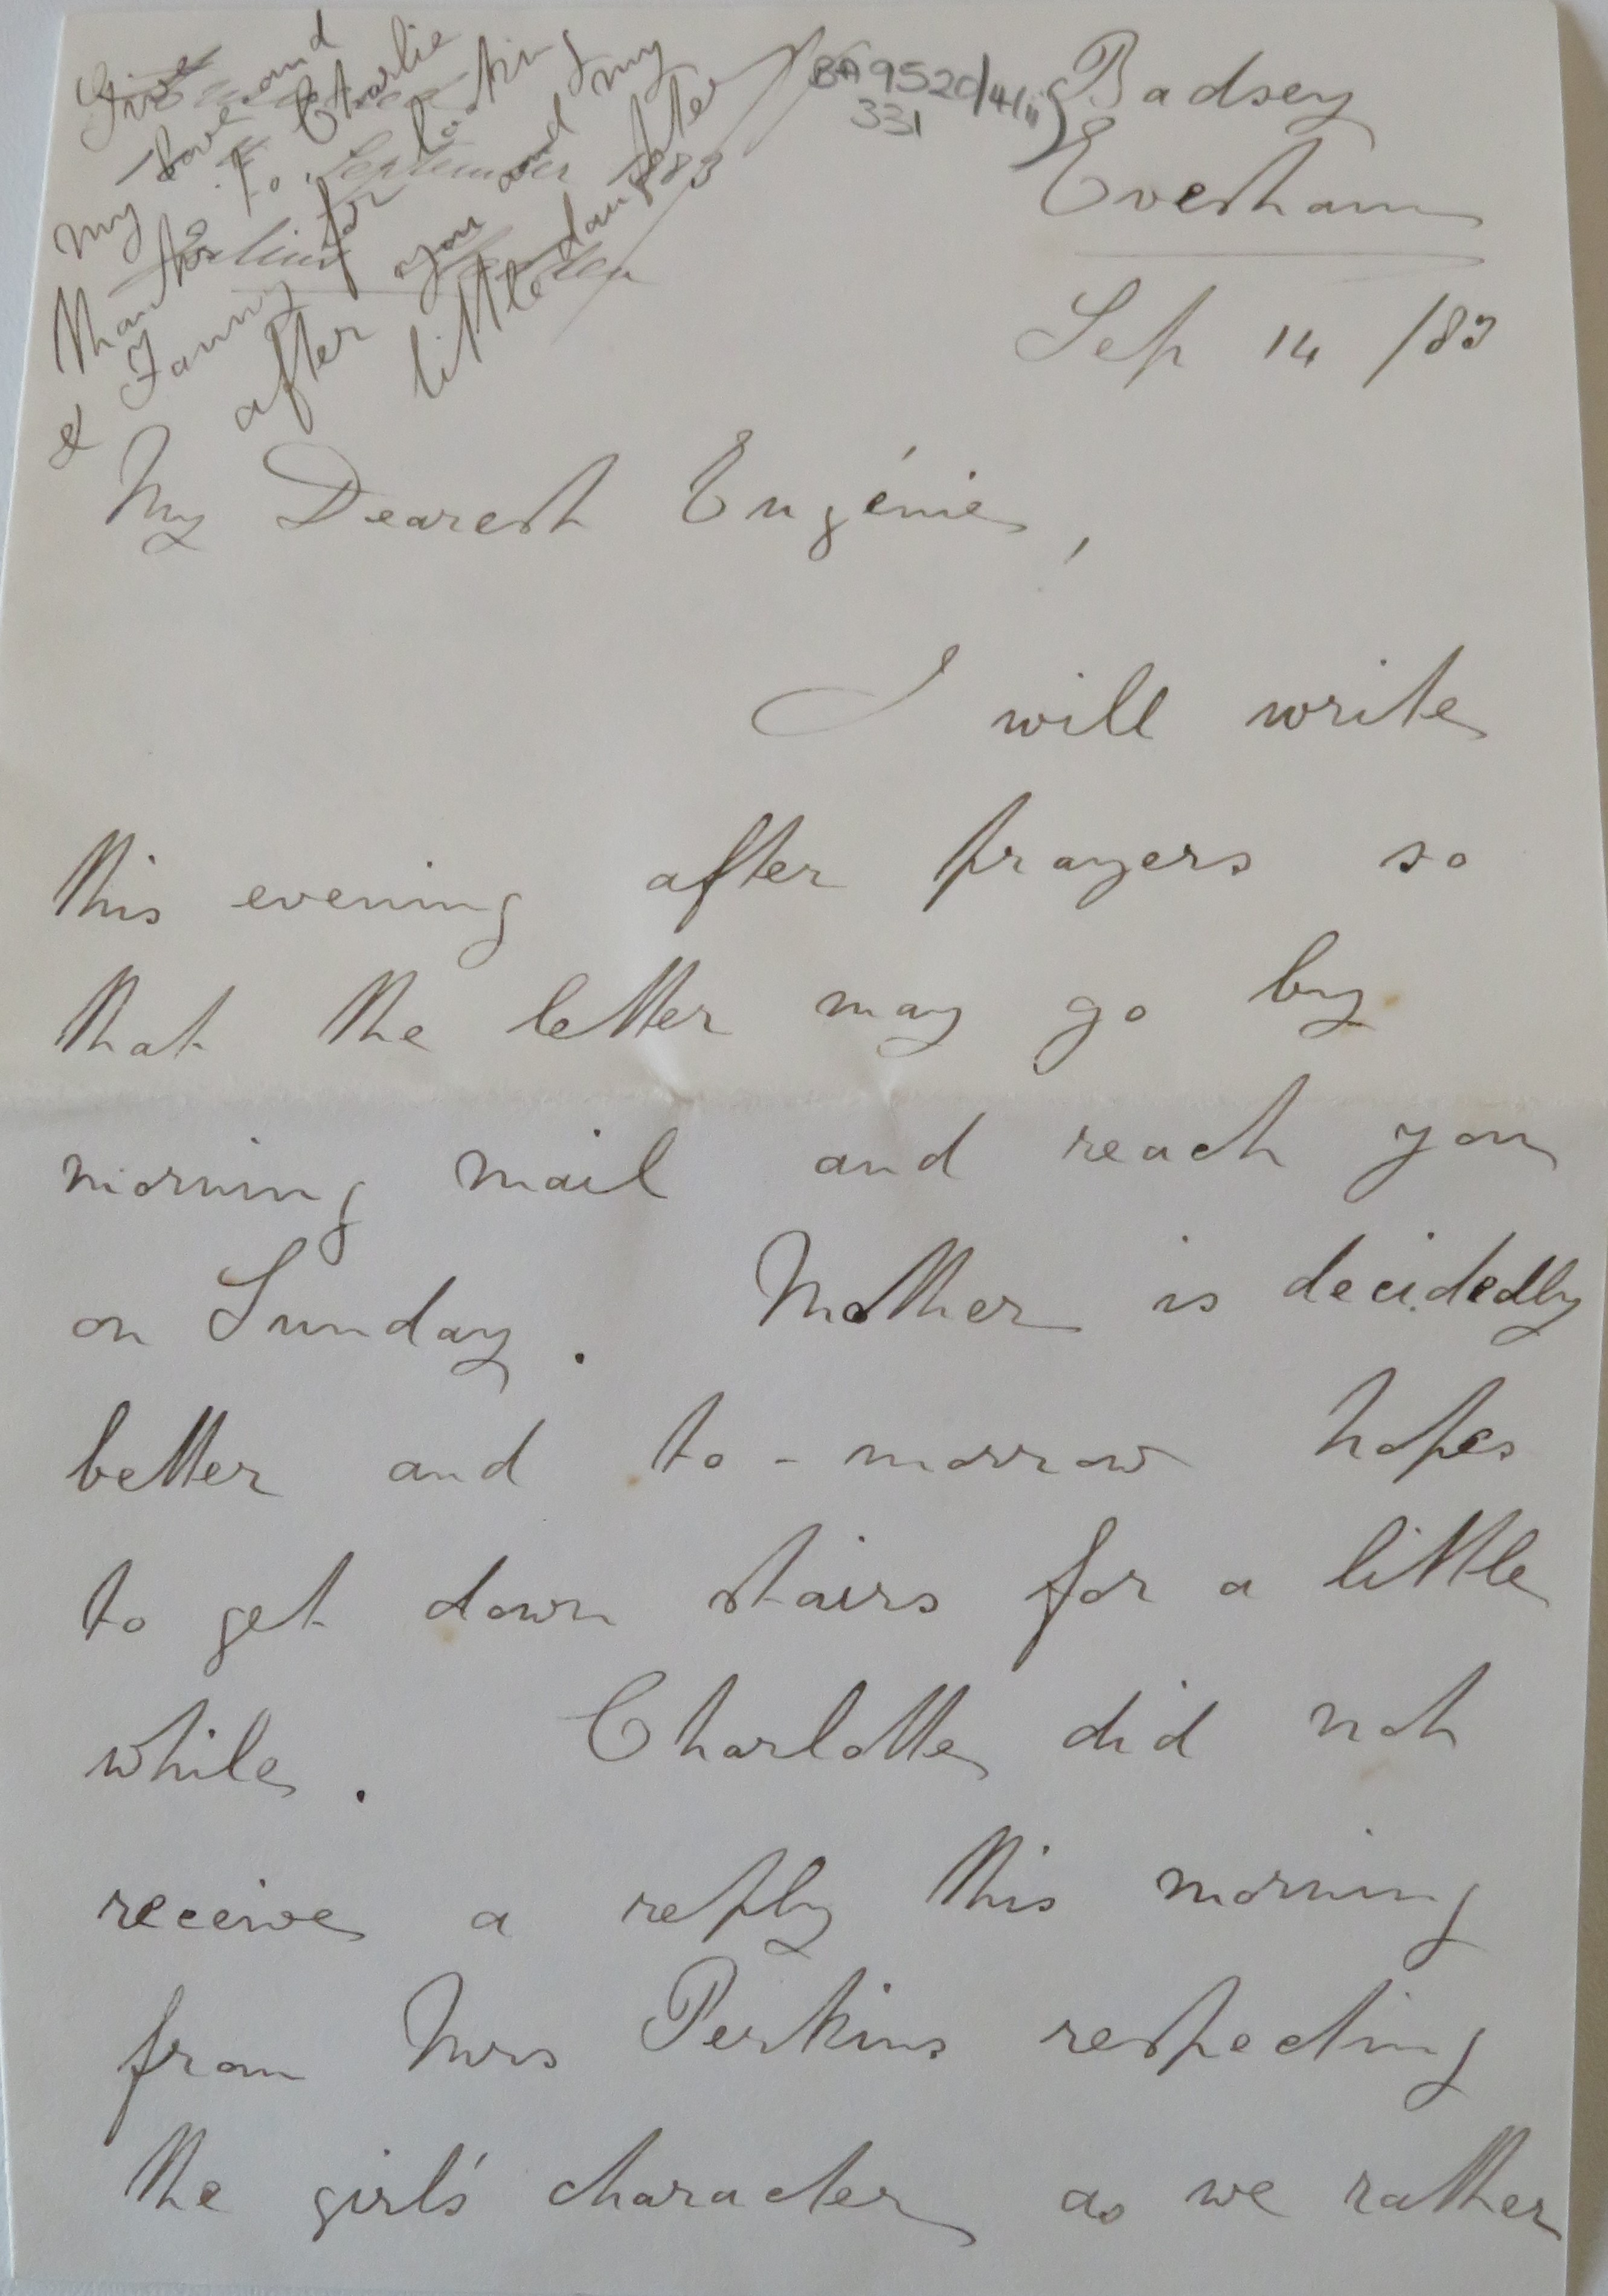 Give
my love and
thanks to Charlie
& Fanny for looking
after you and my
little daughter
September 1883
BA 9520/4/11)
331
Badsey
Evesham
Sep 14 /83
My Dearest Eugénie,
I will write
this evening after prayers so
that the letter may go by
morning mail and reach you
on Sunday. Mother is decidedly
better and to-morrow hopes
to get down stairs for a little
while. Charlotte did not
receive a reply this morning
from Mrs Perkins respecting
the girl's character as we rather